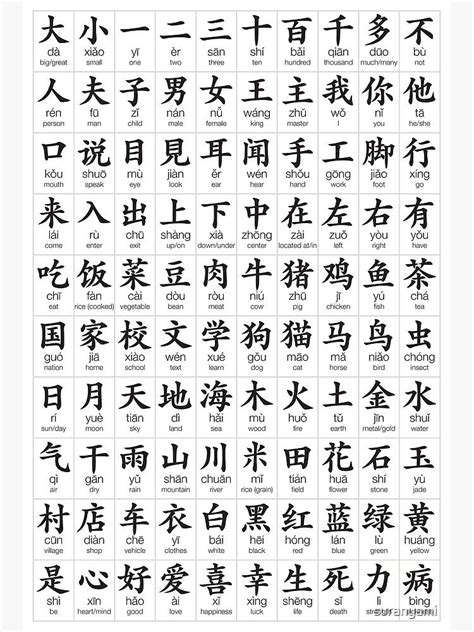 大 小 一 二 三 十 百 千 多 不
dà xiǎo yī èr sān shí bǎi qiān duō bù
big/great small one two three ten hundred thousand much/many not
人 夫 子 男 女 王 主 我 你 他
rén fū zǐ nán nǚ wáng zhǔ wǒ nǐ tā
person man child male female king master I you he/she
口 说 目 見 耳 闻 手 工 脚 行
kǒu shuō mù jiàn ěr wén shǒu gōng jiǎo xíng
mouth speak eye look ear hear hand work foot go
来 入 出 上 下 中 在 左 右 有
lái rù chū shàng xià zhōng zài zuǒ yòu yǒu
come enter exit up/on down/under center located at/in left right have
吃 饭 菜 豆 肉 牛 猪 鸡 鱼 茶
chī fàn cài dòu ròu niú zhū jī yú chá
eat rice (cooked) vegetable bean meat cow pig chicken fish tea
国 家 校 文 学 狗 猫 马 鸟 虫
guó jiā xiào wén xué gǒu māo mǎ niǎo chóng
nation home school text learn dog cat horse bird insect
日 月 天 地 海 木 火 土 金 水
rì yuè tiān dì hǎi mù huǒ tǔ jīn shuǐ
sun/day moon sky land sea wood fire earth metal/gold water
气 干 雨 山 川 米 田 花 石 玉
qì gān yǔ shān chuān mǐ tián huā shí yù
air dry rain mountain river rice (grain) field flower stone jade
村 店 车 衣 白 黑 红 蓝 绿 黄
cūn diàn chē yī bái hēi hóng lán lǜ huáng
village shop vehicle clothes white black red blue green yellow
是 心 好 爱 喜 幸 生 死 力 病
shì xīn hǎo ài xǐ xìng shēng sǐ lì bìng
be heart/mind good love happiness luck life death
surangami